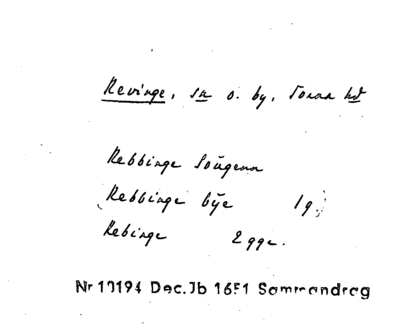 Revinge, sn o. by, Torna hd
Rebbinge Soŭgenn
Rebbinge bÿe 1 g.
Rebinge 2 gge.
Nr 10194 Dec.Jb 1651 Sammandrag